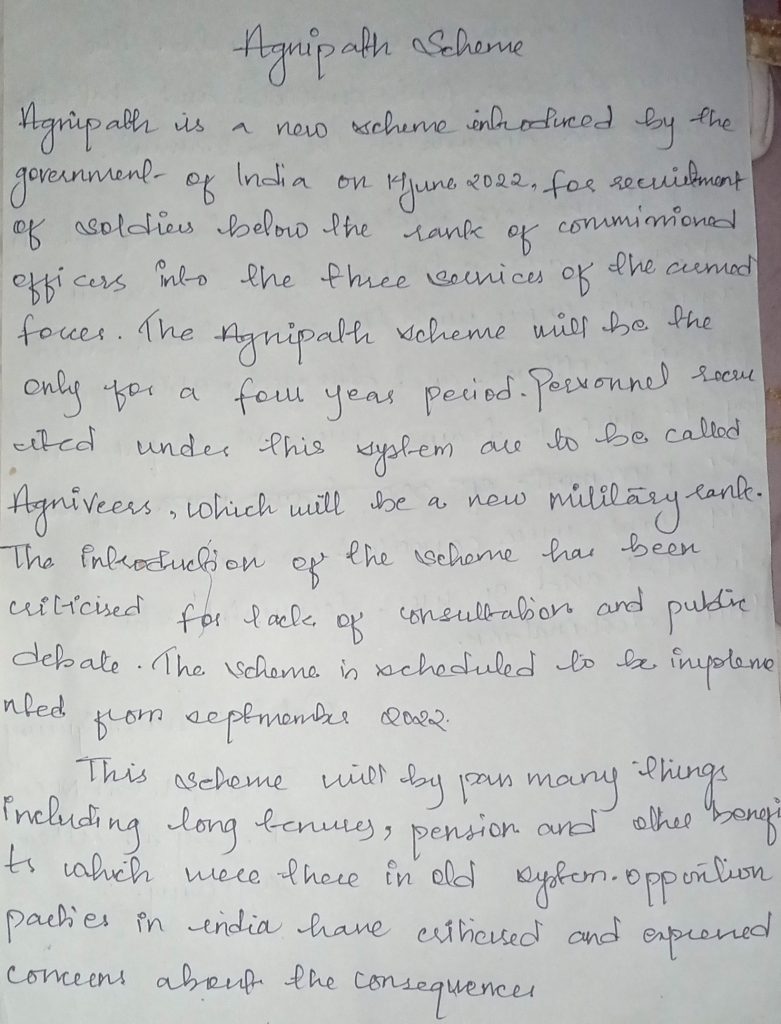 Agnipath Scheme
Agnipath is a new scheme introduced by the
government of India on 14 June 2022, for recruitment
of soldiers below the rank of commissioned
officers into the three services of the armed
forces. The Agnipath scheme will be the
only for a four year period. Personnel recru
uited under this system are to be called
Agniveers, which will be a new military rank.
The introduction of the scheme has been
criticised for lack of consultation and public
debate. The scheme is scheduled to be impleme
nted from septmember 2022.
This scheme will by pass many things
including long tenures, pension and other benefi
ts which were there in old system. opposition
parties in india have criticised and expressed
concerns about the consequences